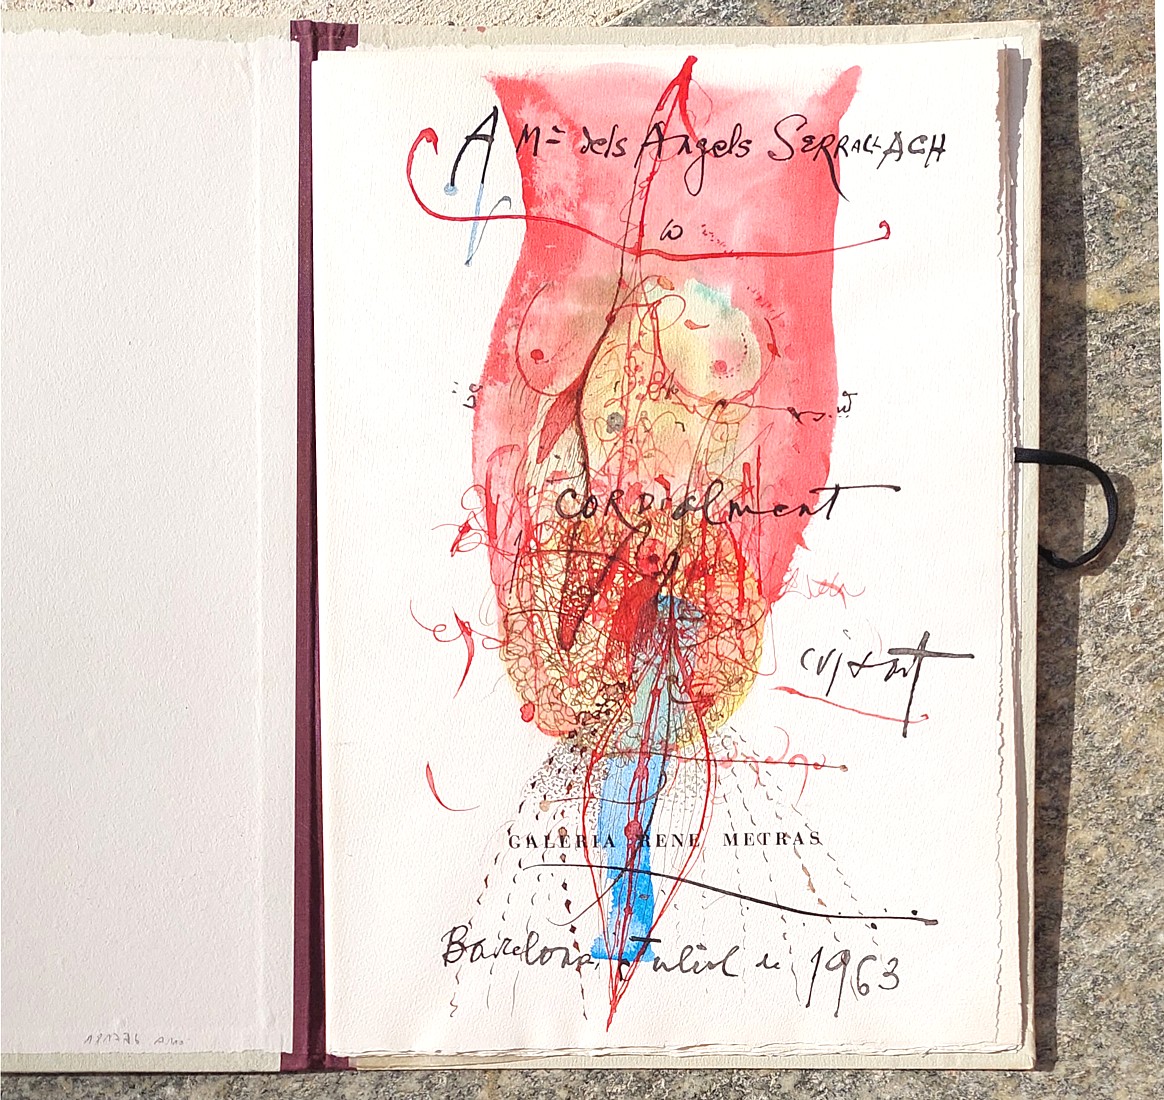 A Mª dels Angels SERRALLACH
CORDIALment
cuixart
GALERIA RENE METRAS
Barcelona, Juliol de 1963